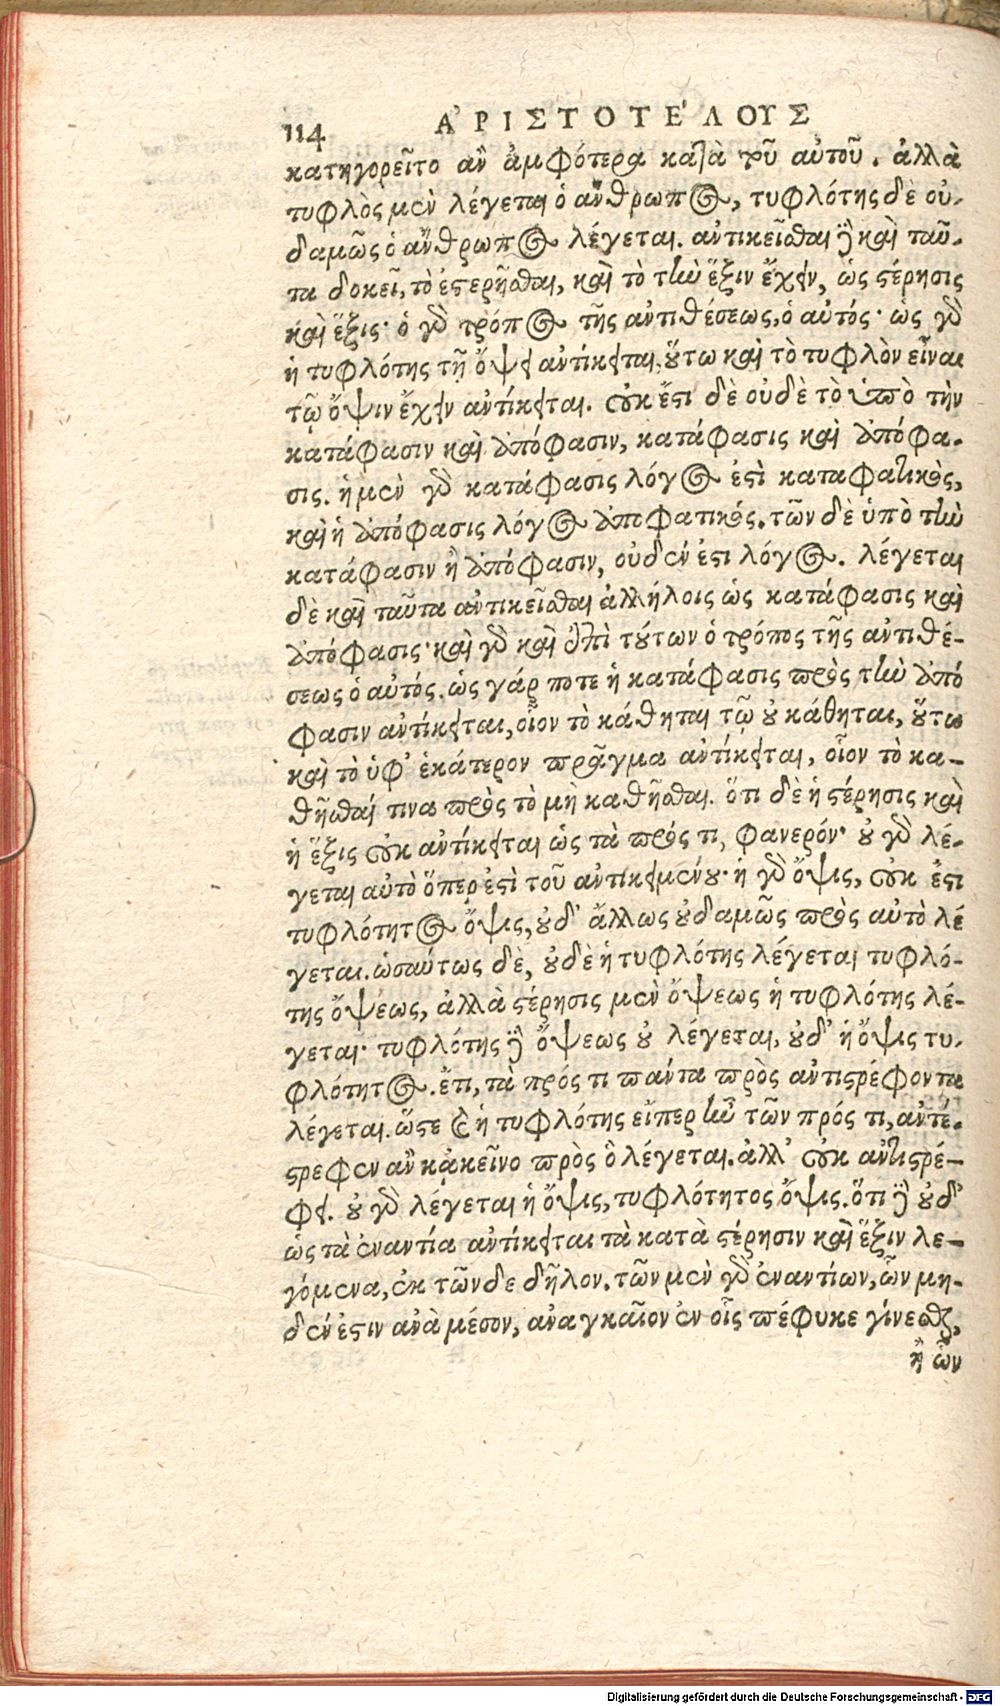 114 ΑʼΡΙΣΤΟΤΕʹΛΟΥΣ
κατηγορεῖτο ἂν ἀμφότερα κατὰ τοῦ αὐτοῦ. ἀλλὰ
τυφλὸς μὲν λέγεται ὁ ἄνθρωπος, τυφλότης δὲ οὐ-
δαμῶς ὁ ἄνθρωπος λέγεται. ἀντικεῖσθαι δὲ καὶ ταῦ-
τα δοκεῖ, τὸ ἐστερῆσθαι, καὶ τὸ τὴν ἕξιν ἔχειν, ὡς στέρησις
καὶ ἕξις· ὁ γὰρ τρόπος τῆς ἀντιθέσεως, ὁ αὐτός· ὡς γὰρ
ἡ τυφλότης τῇ ὄψει ἀντίκειται, οὕτω καὶ τὸ τυφλὸν εἶναι
τῷ ὄψιν ἔχειν ἀντίκειται. οὐκ ἔστι δὲ οὐδὲ τὸ ὑπὸ τὴν
κατάφασιν καὶ ἀπόφασιν, κατάφασις καὶ ἀπόφα-
σις. ἡ μὲν γὰρ κατάφασις λόγος ἐστὶ καταφατικὸς,
καὶ ἡ ἀπόφασις λόγος ἀποφατικός. τῶν δὲ ὑπὸ τὴν
κατάφασιν ἢ ἀπόφασιν, οὐδέν ἐστι λόγος. λέγεται
δὲ καὶ ταῦτα ἀντικεῖσθαι ἀλλήλοις ὡς κατάφασις καὶ
ἀπόφασις· καὶ γὰρ καὶ ἐπὶ τούτων ὁ τρόπος τῆς ἀντιθέ-
σεως ὁ αὐτός. ὡς γάρ ποτε ἡ κατάφασις πρὸς τὴν ἀπό
φασιν ἀντίκειται, οἷον τὸ κάθηται τῷ οὐ κάθηται, οὕτω
καὶ τὸ ὑφ' ἑκάτερον πρᾶγμα ἀντίκειται, οἷον τὸ κα-
θῆσθαί τινα πρὸς τὸ μὴ καθῆσθαι. ὅτι δὲ ἡ στέρησις καὶ
ἡ ἕξις οὐκ ἀντίκειται ὡς τὰ πρός τι, φανερόν· οὐ γὰρ λέ-
γεται αὐτὸ ὅπερ ἐστὶ τοῦ ἀντικειμένου· ἡ γὰρ ὄψις, οὐκ ἔστι
τυφλότητος ὄψις, οὐδ' ἄλλως οὐδαμῶς πρὸς αὐτὸ λέ
γεται. ὡσαύτως δὲ, οὐδὲ ἡ τυφλότης λέγεται τυφλό-
της ὄψεως, ἀλλὰ στέρησις μὲν ὄψεως ἡ τυφλότης λέ-
γεται· τυφλότης δὲ ὄψεως οὐ λέγεται, οὐδ' ἡ ὄψις τυ-
φλότητος. ἔτι, τὰ πρός τι πάντα πρὸς ἀντιστρέφοντα
λέγεται. ὥστε καὶ ἡ τυφλότης εἴπερ ἦν τῶν πρός τι, ἀντέ-
στρεφεν ἂν κἀκεῖνο πρὸς ὃ λέγεται. ἀλλ' οὐκ ἀντιστρέ-
φει. οὐ γὰρ λέγεται ἡ ὄψις, τυφλότητος ὄψις. ὅτι δὲ οὐδ'
ὡς τὰ ἐναντία ἀντίκειται τὰ κατὰ στέρησιν καὶ ἕξιν λε-
γόμενα, ἐκ τῶνδε δῆλον. τῶν μὲν γὰρ ἐναντίων, ὧν μη-
δέν ἐστιν ἀνὰ μέσον, ἀναγκαῖον ἐν οἷς πέφυκε γίνεσθαι,
ἢ ὧν
Digitalisierung gefördert durch die Deutsche Forschungsgemeinschaft - DFG